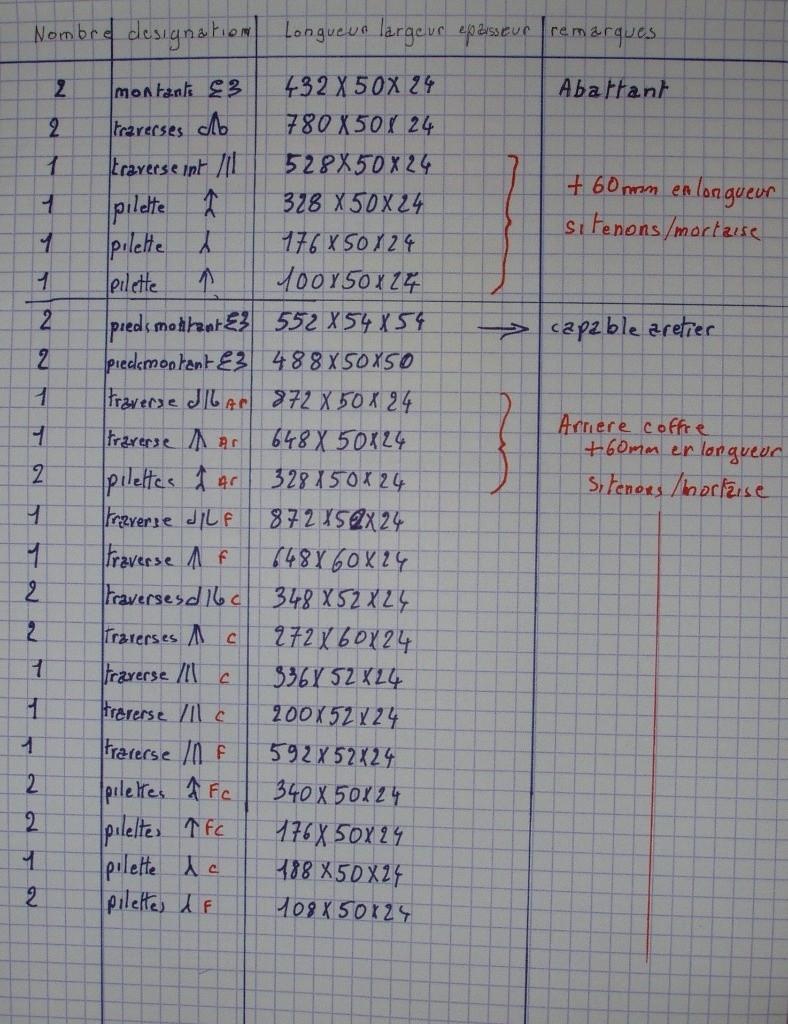 Nombre designation Longueur largeur epaisseur remarques
2 montants ƐƷ 432X50X24 Abattant
2 traverses 780X50X24
1 traverse int /|| 528X50X24
+ 60mm en longueur
1 pilette 328X50X24
si tenons/mortaise
1 pilette 176X50X24
1 pilette ↑ 100X50X24
2 pieds montant ƐƷ 552X54X54 → capable aretier
2 pieds montant ƐƷ 488X50X50
1 traverse Ar 872X50X24
Arriere coffre
1 traverse Ar 648X50X24
+60mm en longueur
2 pilettes Ar 328X50X24
si tenons/mortaise
1 traverse F 872X52X24
1 traverse F 648X60X24
2 traverses c 348X52X24
2 traverses c 272X60X24
1 traverse /|| c 336X52X24
1 traverse /|| c 200X52X24
1 traverse F 592X52X24
2 pilettes Fc 340X50X24
2 pilettes ↑ Fc 176X50X24
1 pilette c 188X50X24
2 pilettes F 108X50X24